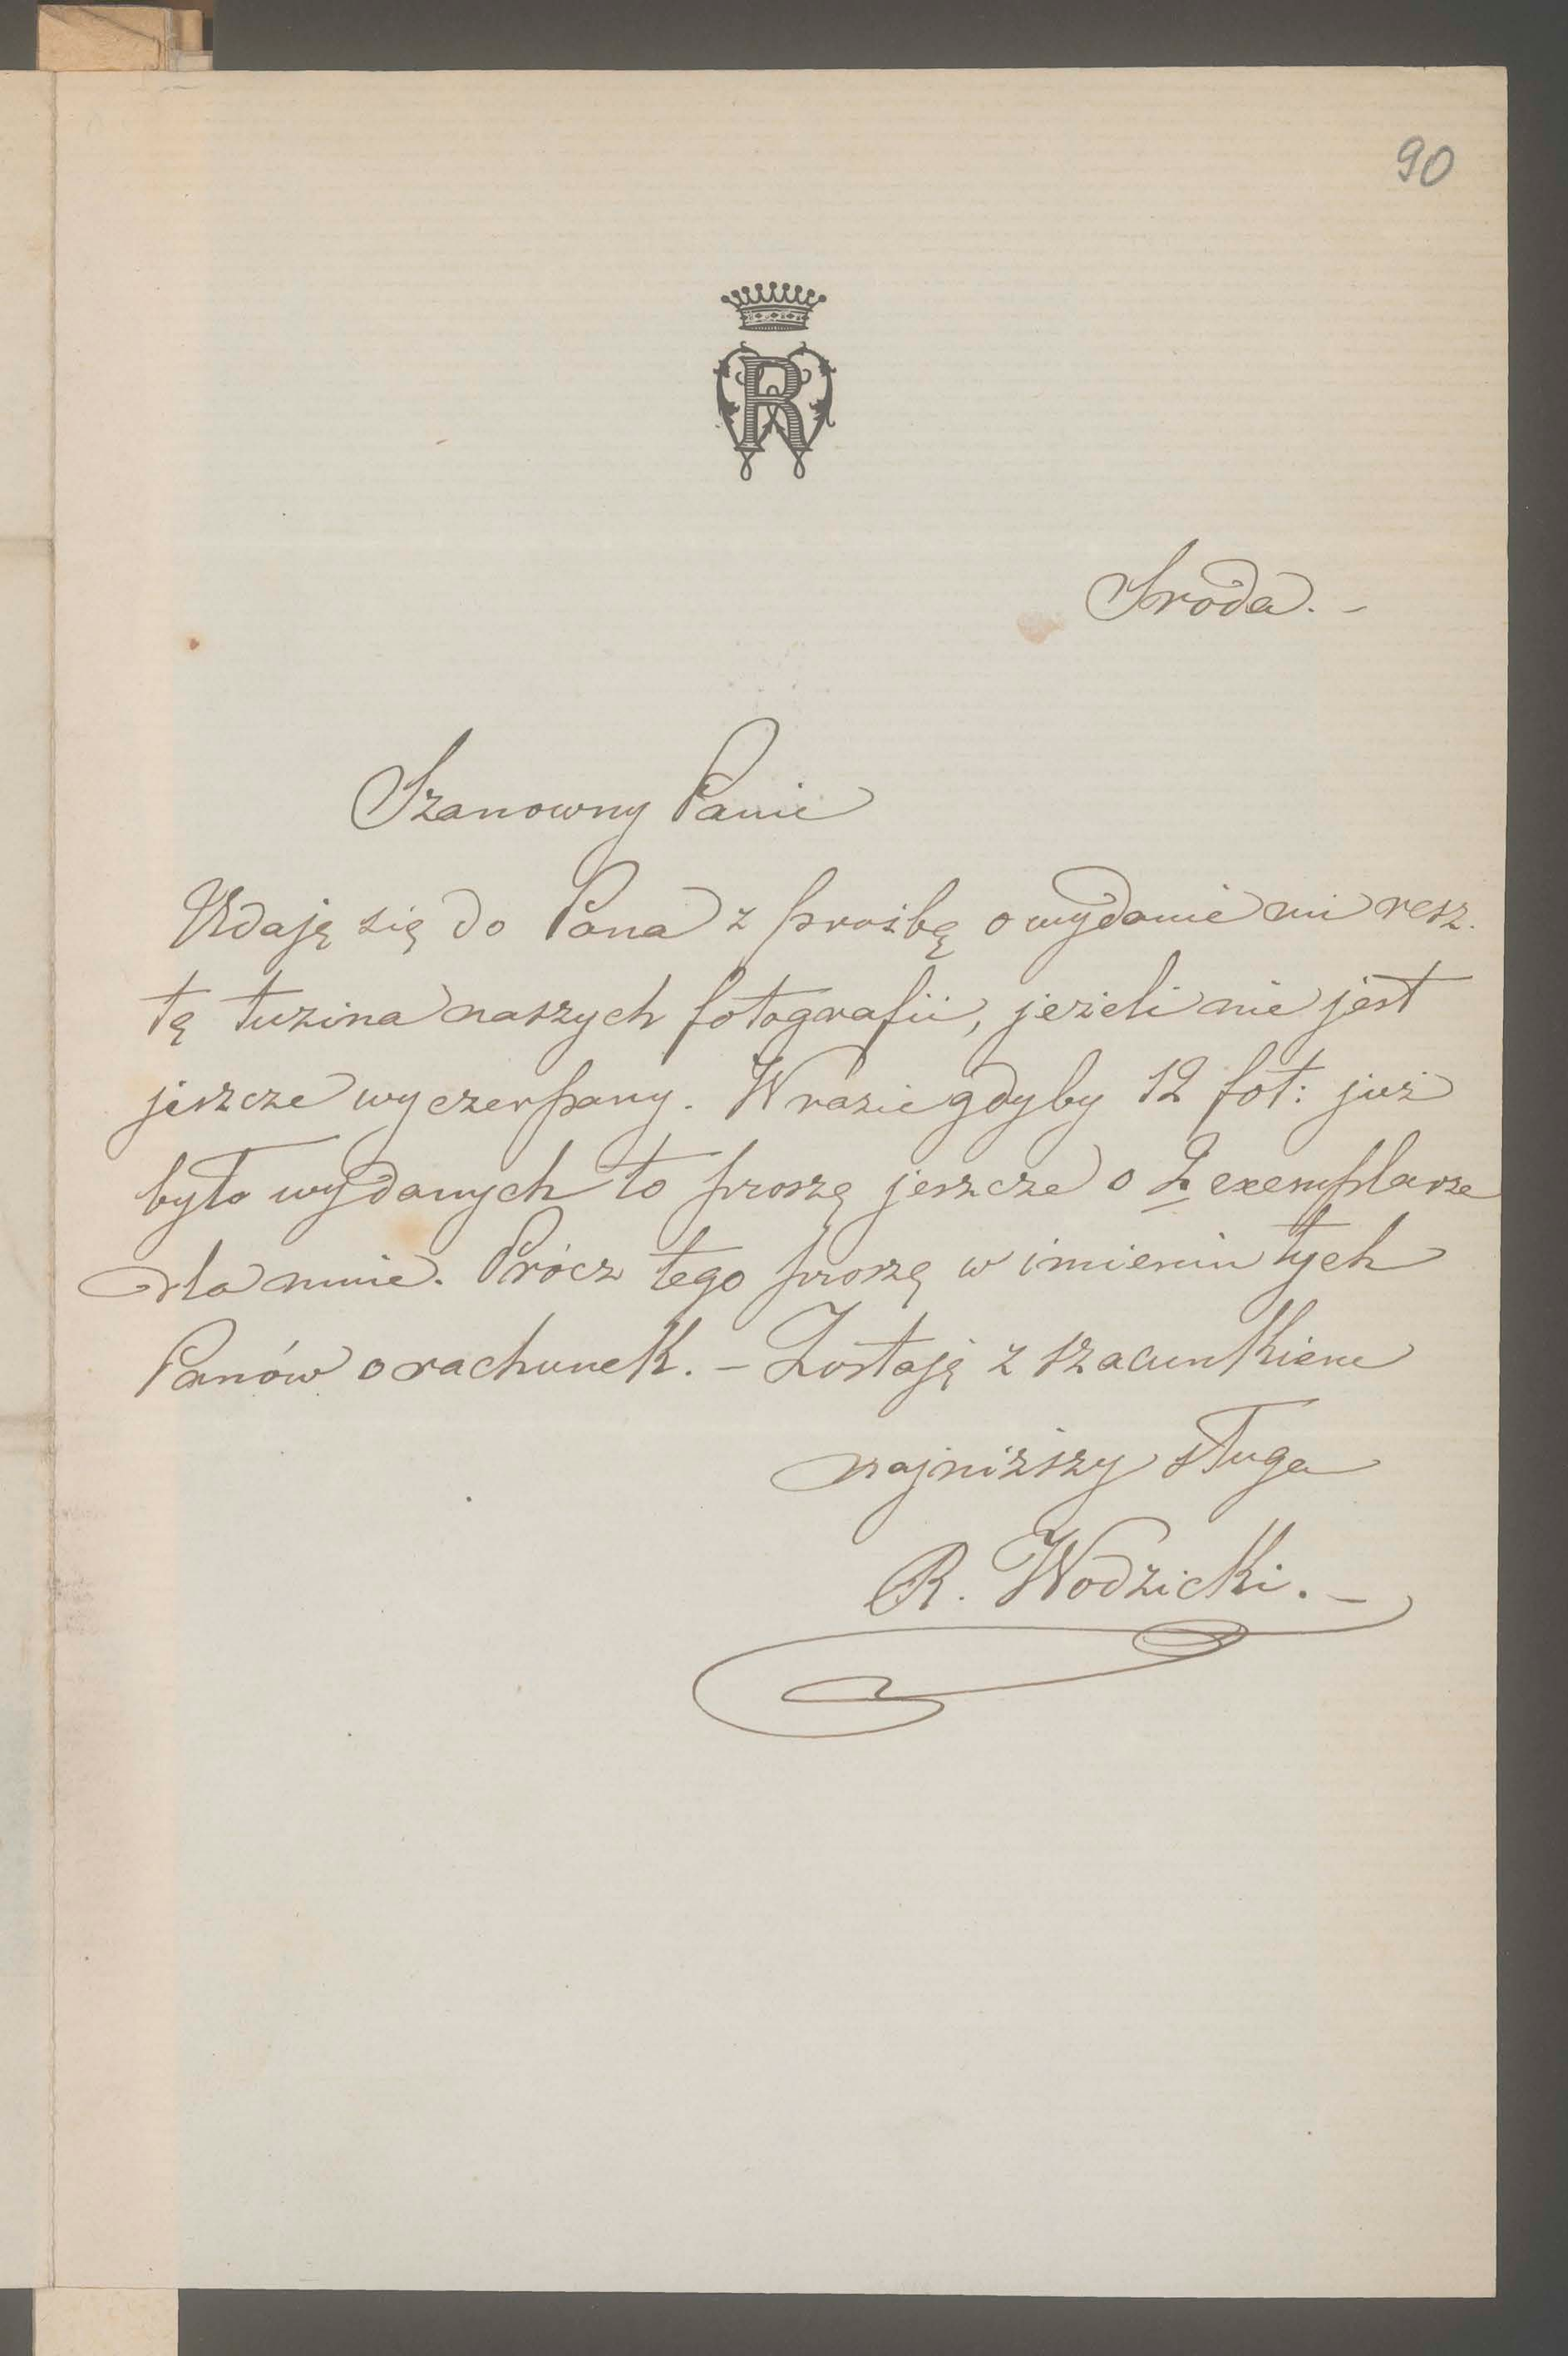 90
WR
Sroda. -
Szanowny Panie
Udaję się do Pana z prośbą o wydanie mi resz.
tę tuzina naszych fotografii, jeżeli nie jest
jeszcze wyczerpany. W razie gdyby 12 fot: już
było wydanych to proszę jeszcze o 2 exemplarze
dla mnie. Prócz tego proszę w imieniu tych
Panów o rachunek. - Zostaję z szacunkiem
najniższy sługa
R. Wodzicki. -